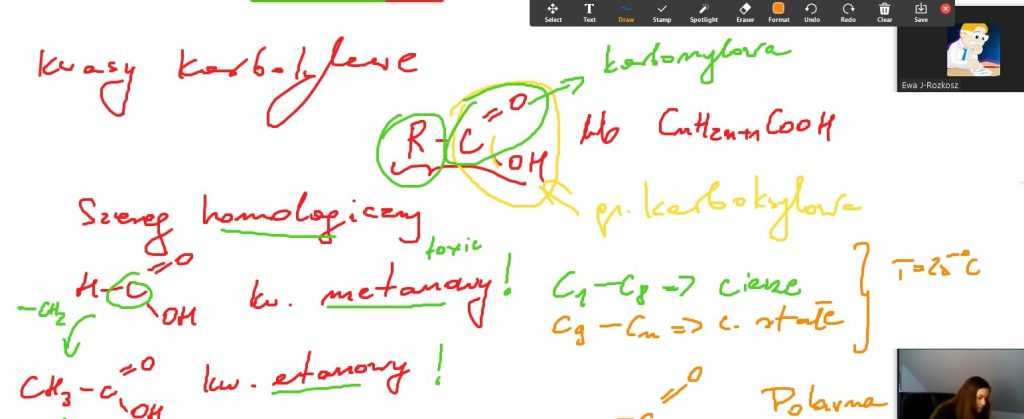 Select Text Draw Stamp Spotlight Eraser Format Undo Redo Clear Save
Ewa J-Rozkosz
kwasy karboksylowe
karbonylowa
R-C
O
OH
lub CnH2n+1COOH
gr. karboksylowa
Szereg homologiczny
toxic
H-C
O
OH
kw. metanowy!
C1-C8 => ciecze
T=25°C
-CH2
C9-Cn => c. stałe
CH3-C
O
OH
kw. etanowy!
O
C
Polarna